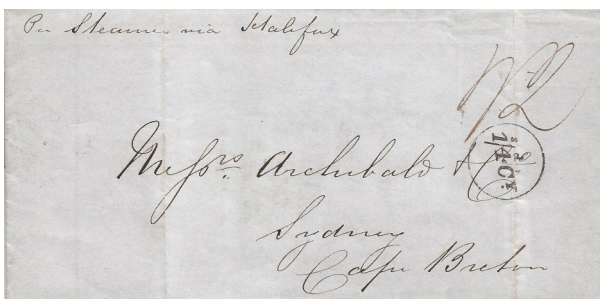 Per Steamer via Halifax
1/2
1/4 Cy.
Messrs. Archibald & Co
Sydney
Cape Breton